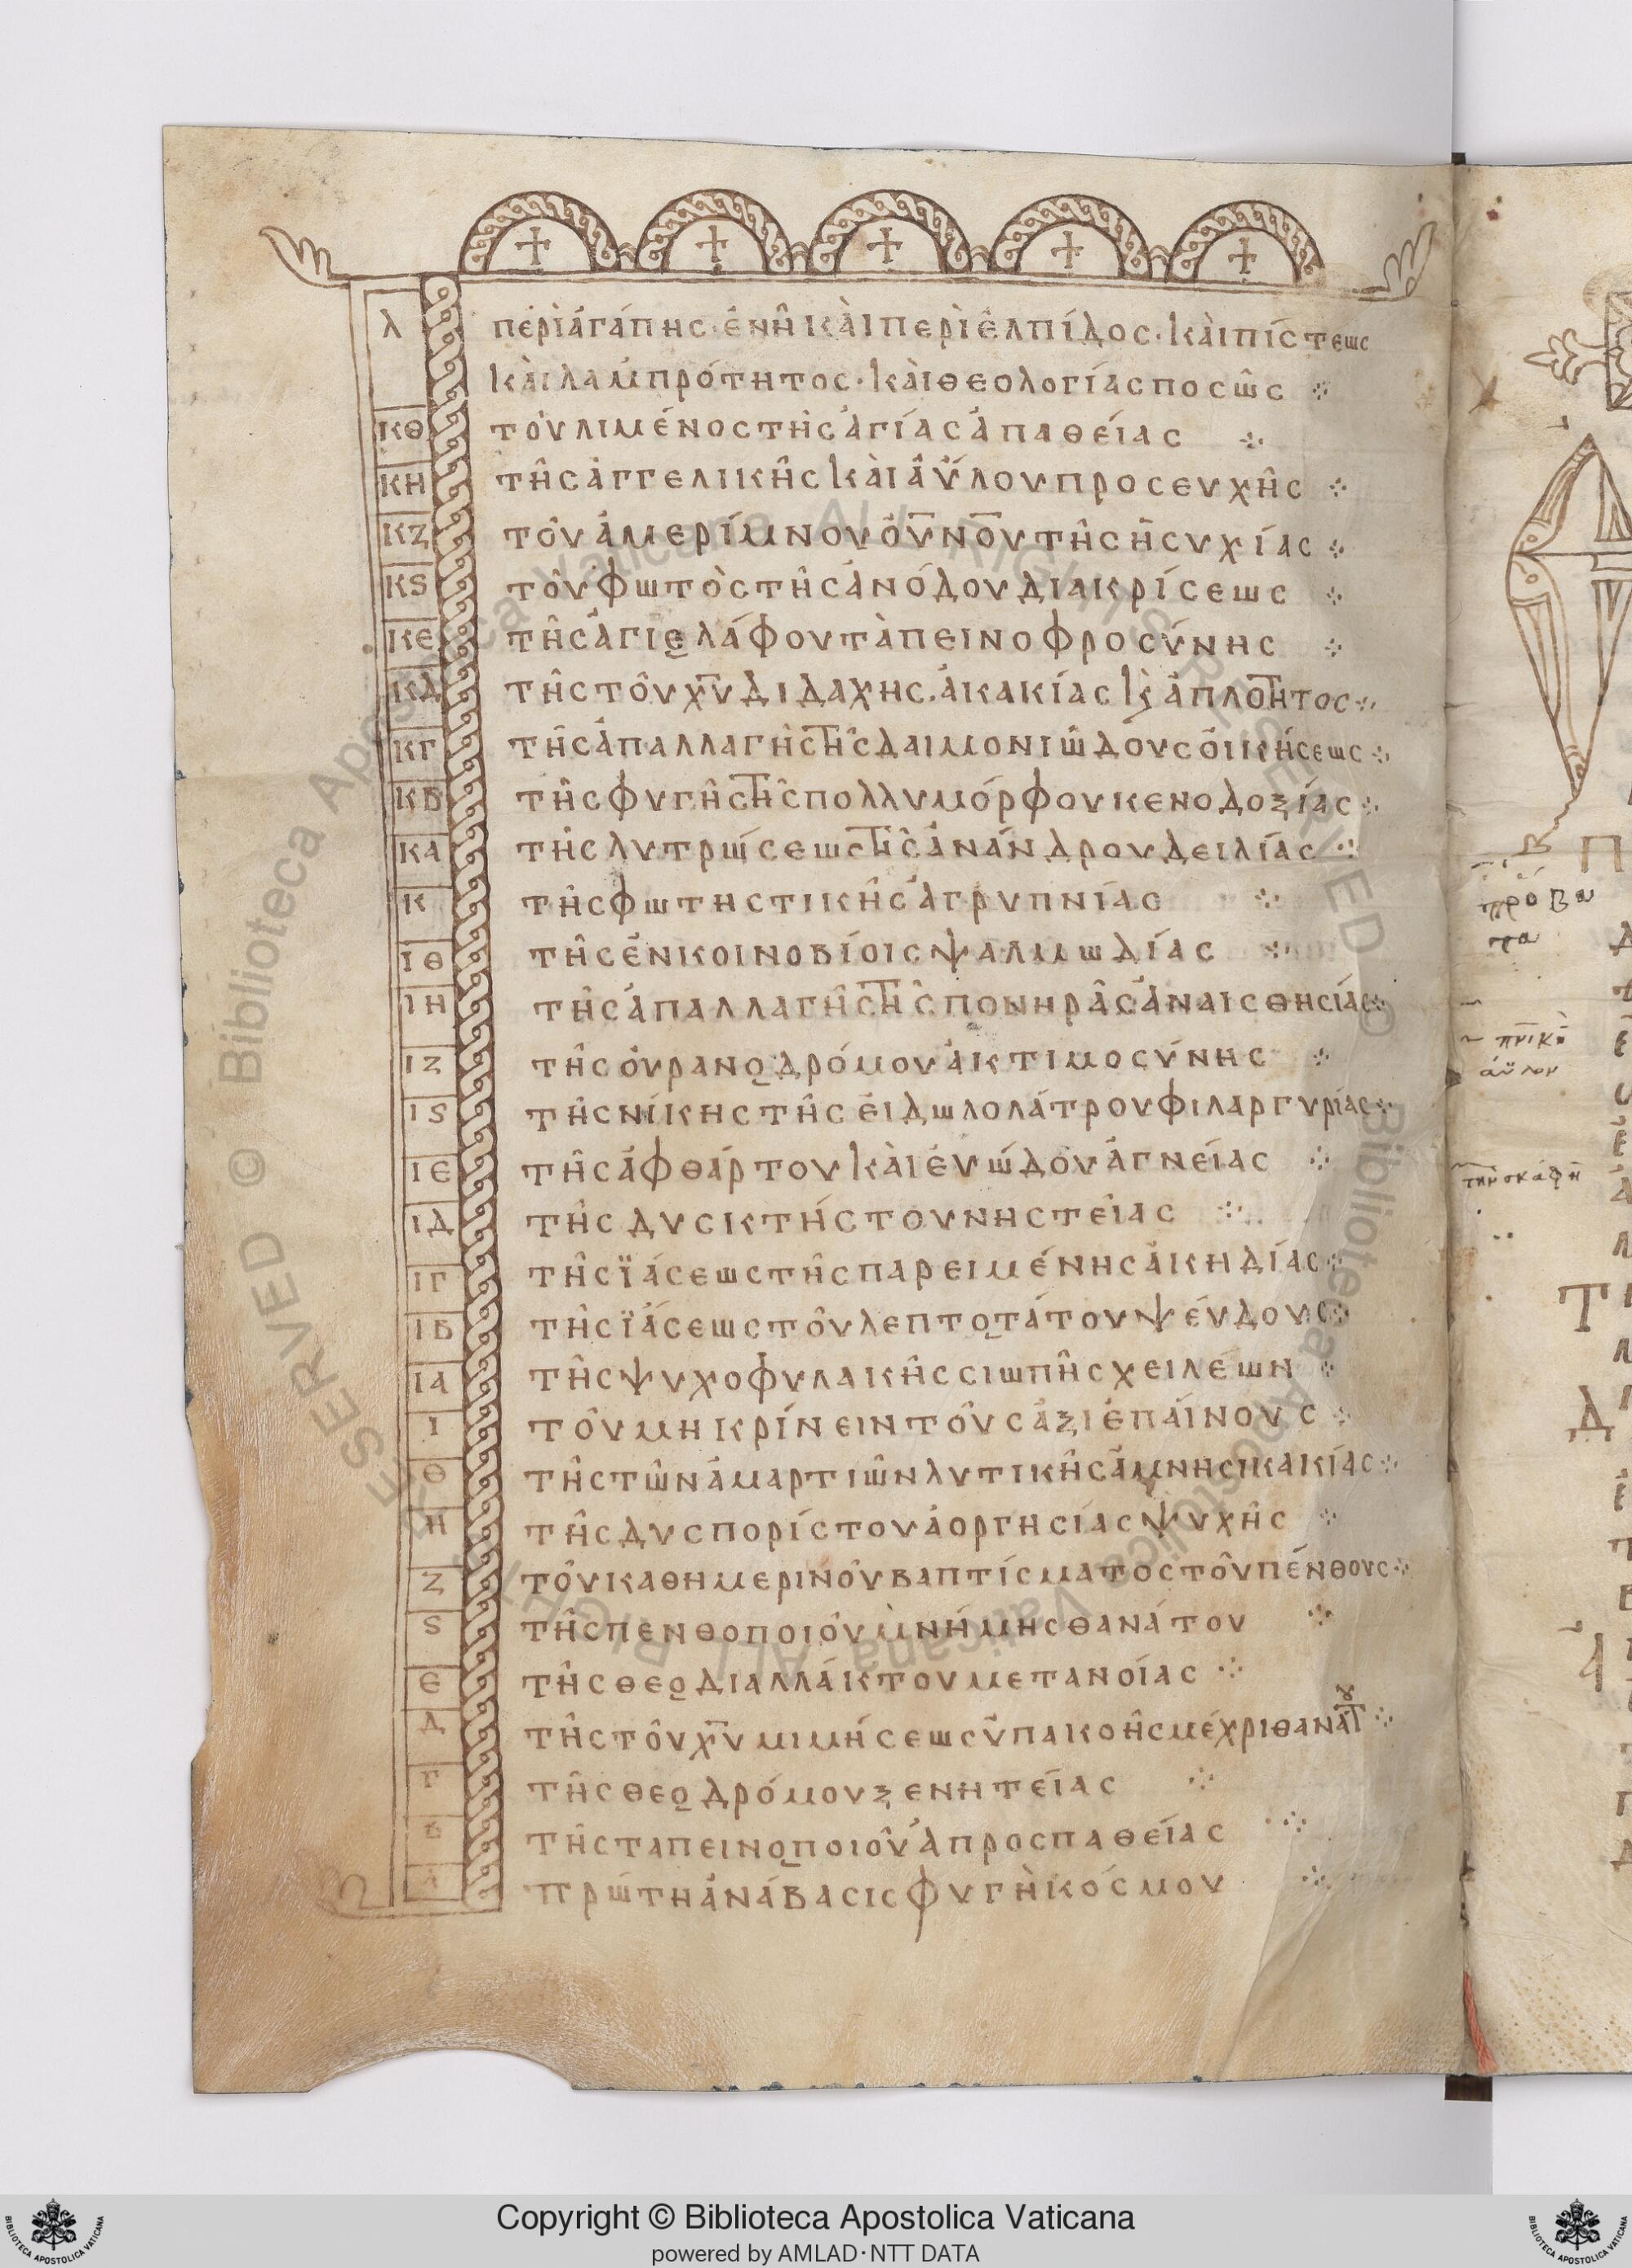 λ περὶ ἀγάπης· ἐν ἧ κὰι περὶ ἐλπίδος· κὰι πίστεως
κὰι λαμπρότητος· κὰι θεολογίας ποσῶς ⁘
κθ τοῦ λιμένος τῆς ἁγίας ἀπαθείας ⁘
κη τῆς ἀγγελικῆς κὰι ἀΰλου προσευχῆς ⁘
κζ τοῦ ἀμερίμνου ο̅υ̅ν̅ο̅υ τῆς ἡσυχίας ⁘
κς τοῦ φωτὸς τῆς ἀνόδου διακρίσεως ⁘
κε τῆς ἁγιοελάφου τὰπεινοφροσύνης ⁘
κδ τῆς τοῦ χ̅υ̅ διδαχης. ἀκακίας κ̀ ἁπλότητος ⁘
κγ τῆς ἀπαλλαγῆς τῆς δαιμονιώδους ὀικήσεως ⁘
κβ τῆς φυγῆς τῆς πολλυμόρφου κενοδοξίας ⁘
κα τῆς λυτρώσεως τῆς ἀνάνδρου δειλίας ⁘
κ τῆς φωτηστικῆς ἀγρυπνίας ⁘
ιθ τῆς ἐν κοινοβίοις ψαλμωδίας ⁘
ιη τῆς ἀπαλλαγῆς τῆς πονηρᾶς ἀναισθησίας ⁘
ιζ τῆς ὀυρανοδρόμου ἀκτιμοσύνης ⁘
ις τῆς νίκης τῆς ἐιδωλολάτρου φιλαργυρίας ⁘
ιε τῆς ἀφθάρτου κὰι ἐυώδου ἁγνείας ⁘
ιδ τῆς δυσικτήστου νηστείας ⁘
ιγ τῆς ϊάσεως τῆς παρειμένης ἀκηδίας ⁘
ιβ τῆς ϊάσεως τοῦ λεπτοτάτου ψέυδους ⁘
ια τῆς ψυχοφυλακῆς σιωπῆς χειλέων ⁘
ι τοῦ μη κρίνειν τοὺς ἀξιἐπάινους ⁘
θ τῆς τῶν ἁμαρτιῶν λυτικῆς ἀμνησικακίας ⁘
η τῆς δυσπορίστου ἀοργησίας ψυχῆς ⁘
ζ τοῦ καθημερινοῦ βαπτίσματος τοῦ πένθους ⁘
ς τῆς πενθοποιοῦ μνήμης θανάτου ⁘
ε τῆς θεοδιαλλάκτου μετανοίας ⁘
δ τῆς τοῦ χ̅υ̅ μιμήσεως ὑπακοῆς μέχρι θανάτου ⁘
γ τῆς θεοδρόμου ξενητείας ⁘
β τῆς ταπεινοποιοῦ ἀπροσπαθείας ⁘
α πρώτη ἀνάβασις φυγὴ κόσμου ⁘
πρόβα
τα
πνικὸ
ἀΰλον
τὴν σκάφη
Copyright © Biblioteca Apostolica Vaticana
powered by AMLAD·NTT DATA